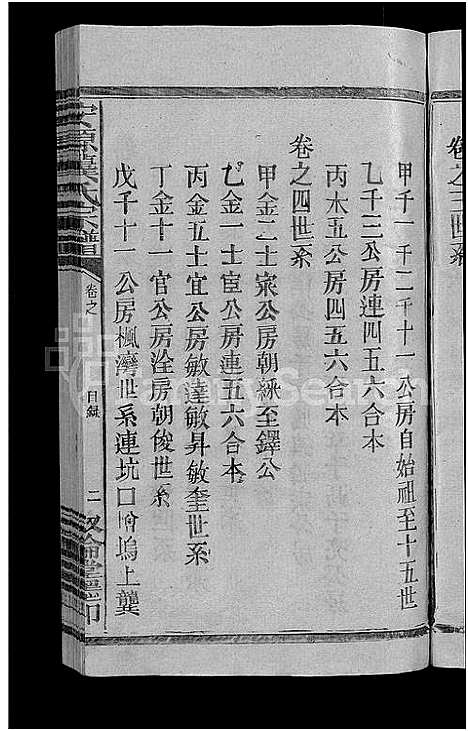 卷之三世系
甲千一千二千十一公房自始祖至十五世
乙千三公房連四五六合本
丙木五公房四五六合本
卷之四世系
甲金二士家公房朝綵至鐸公
乙金一士宦公房連五六合本
丙金五士宜公房敏達敏昇敏奎世系
丁金十一官公房洤房朝俊世系
戊千十一公房楓灣世系連坑口塢上龔
龔氏宗譜
卷之
目錄
二
倫堂